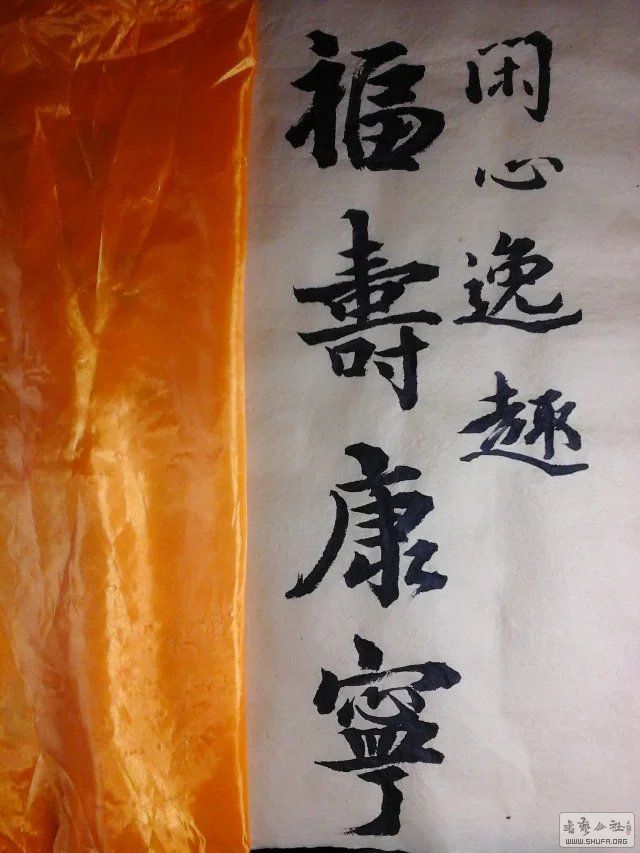 闲心逸趣
福壽康寧
书艺公社
WWW.SHUFA.ORG